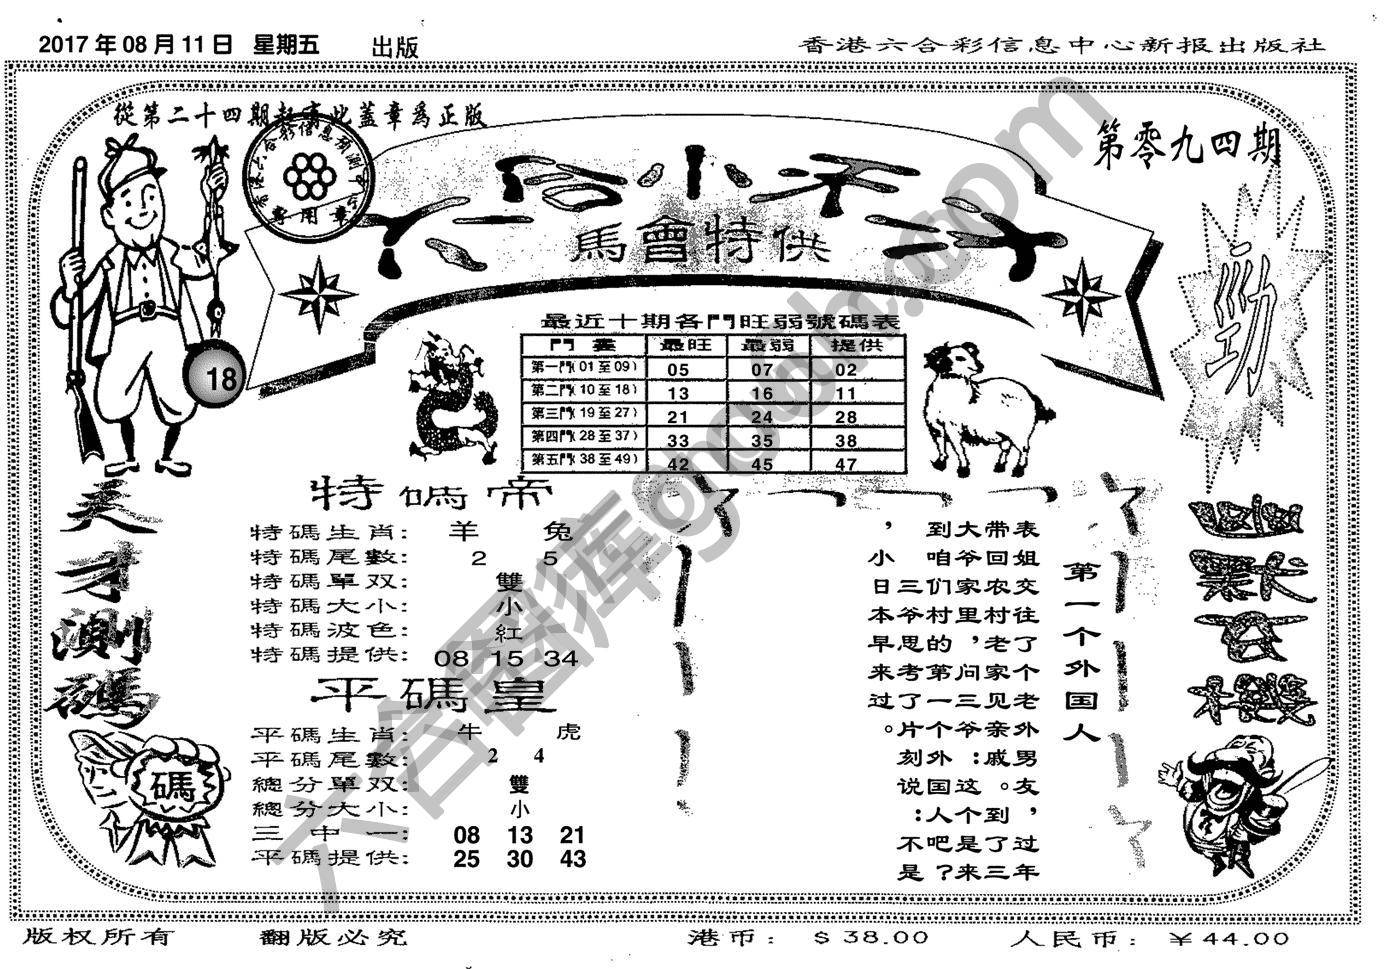 2017年08月11日 星期五 出版
香港六合彩信息中心新报出版社
從第二十四期起請此蓋章爲正版
第零九四期
專用章
馬會特供
勁
18
最近十期各門旺弱號碼表
門 最旺 最弱 提供
第一門(01至09) 05 07 02
第二門(10至18) 13 16 11
第三門(19至27) 21 24 28
第四門(28至37) 33 35 38
第五門(38至49) 42 45 47
天才測碼
碼
特碼帝
特碼生肖: 羊 兔
特碼尾數: 2 5
特碼單双: 雙
特碼大小: 小
特碼波色: 紅
特碼提供: 08 15 34
平碼皇
平碼生肖: 牛 虎
平碼尾數: 2 4
總分單双: 雙
總分大小: 小
三中一: 08 13 21
平碼提供: 25 30 43
第一个外国人
表姐交往了个老外男友,过年
带回农村老家见亲戚。这到了三
大爷家里,问三爷:外国个是来
到咱们村的第一个外国人吧?是
三爷思考了片刻说:不
,小日本早来过。
版权所有 翻版必究 港币: $38.00 人民币: ¥44.00
六合图库 ghcdh.com